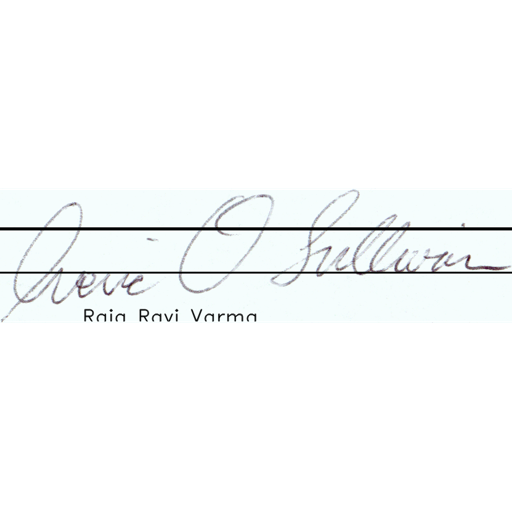 O'Sullivan
Raja Ravi Varma